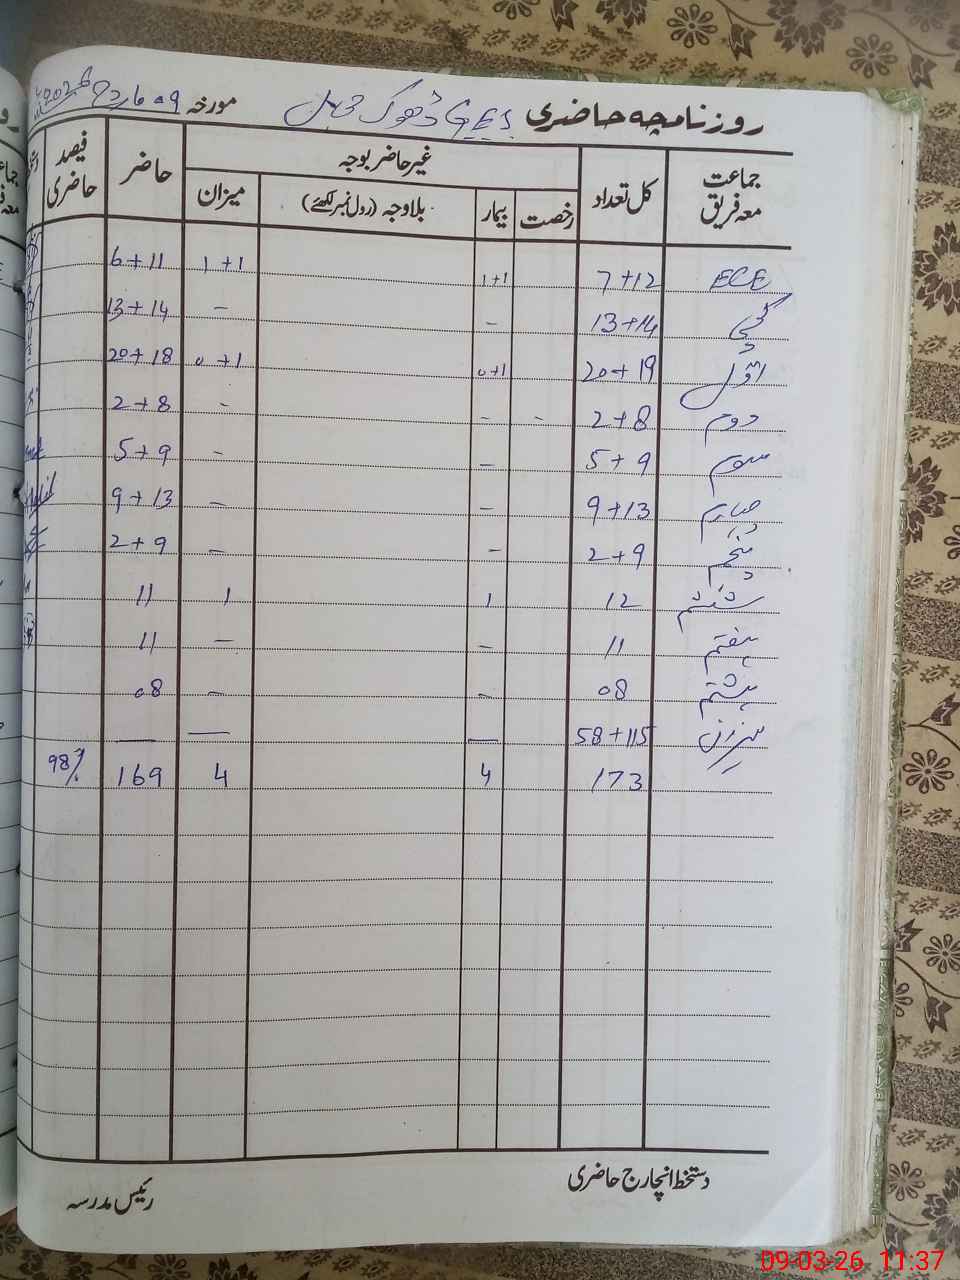 روزنامچہ حاضری GGES ڈھوک مورخہ 09 مارچ 2026
جماعت معہ فریق کل تعداد غیر حاضر بوجہ حاضر فیصد حاضری
رخصت بیمار بلاوجہ (رول نمبر لکھئے) میزان
ECE 7+12 1+1 1+1 6+11
کچی 13+14 - - 13+14
اول 20+19 0+1 0+1 20+18
دوم 2+8 - - - 2+8
سوم 5+9 - - 5+9
چہارم 9+13 - - 9+13
پنجم 2+9 - - 2+9
ششم 12 1 1 11
ہفتم 11 - - 11
ہشتم 08 - - 08
میزان 58+115 — — —
173 4 4 169 98%
دستخط انچارج حاضری
رئیس مدرسہ
09-03-26 11:37